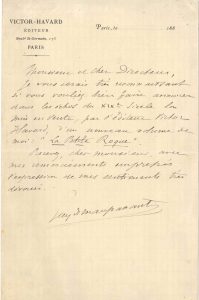 VICTOR-HAVARD
ÉDITEUR
Boulᵈ St-Germain, 175
PARIS
Paris, le 188
Monsieur et cher Directeur,
Je vous serais très reconnaissant
si vous vouliez bien faire annoncer
dans les échos du XIXe Siècle la
mise en vente, par l'éditeur Victor
Havard, d'un nouveau volume de
moi: "La Petite Roque".
Recevez, cher monsieur, avec
mes remerciements empressés
l'expression de mes sentiments très
dévoués.
Guy de Maupassant